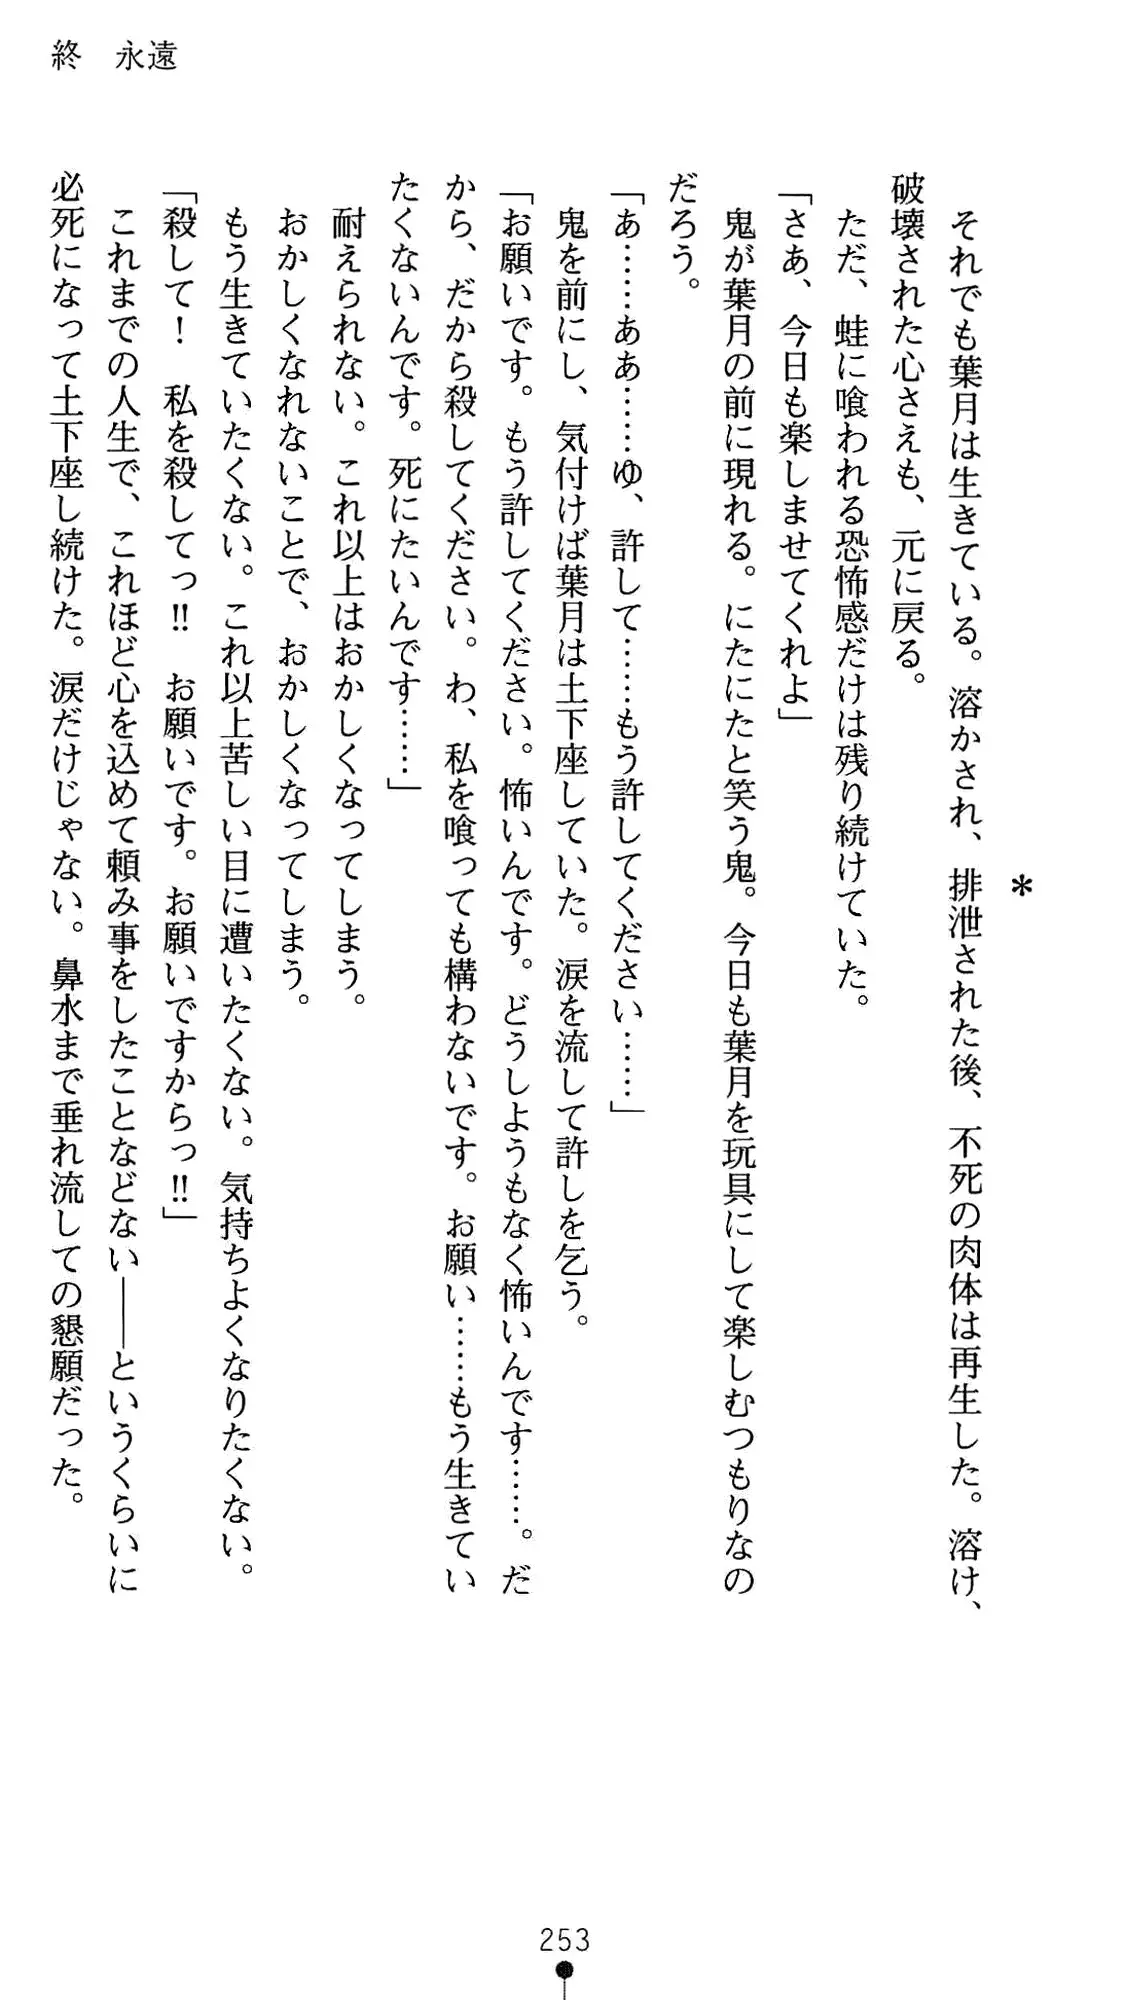 終　永遠
＊
　それでも葉月は生きている。溶かされ、排泄された後、不死の肉体は再生した。溶け、
破壊された心さえも、元に戻る。
　ただ、蛙に喰われる恐怖感だけは残り続けていた。
「さあ、今日も楽しませてくれよ」
　鬼が葉月の前に現れる。にたにたと笑う鬼。今日も葉月を玩具にして楽しむつもりなの
だろう。
「あ……ああ……ゆ、許して……もう許してください……」
　鬼を前にし、気付けば葉月は土下座していた。涙を流して許しを乞う。
「お願いです。もう許してください。怖いんです。どうしようもなく怖いんです……。だ
から、だから殺してください。わ、私を喰っても構わないです。お願い……もう生きてい
たくないんです。死にたいんです……」
　耐えられない。これ以上はおかしくなってしまう。
　おかしくなれないことで、おかしくなってしまう。
　もう生きていたくない。これ以上苦しい目に遭いたくない。気持ちよくなりたくない。
「殺して！　私を殺してっ!!　お願いです。お願いですからっ!!」
　これまでの人生で、これほど心を込めて頼み事をしたことなどない――というくらいに
必死になって土下座し続けた。涙だけじゃない。鼻水まで垂れ流しての懇願だった。
253